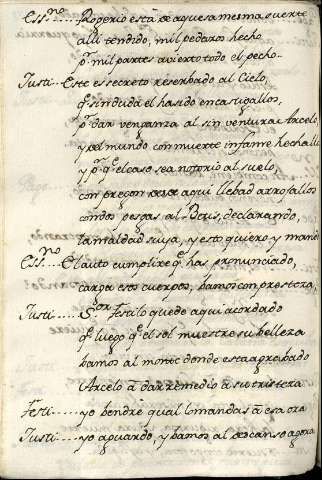 Ess.no Rogerio està de aquesa mesma suerte
alli tendido, mil pedaços hecho
p.r mil partes avierto todo el pecho.
Justi — Este es secreto reserbado al Cielo,
q.e sin duda el ha sido en castigallos,
p.r dar venganza al sin ventura Arcelo,
y al mundo con muerte infame hechallos
y p.r q.e el caso sea notorio al suelo,
con pregon aqui llebad a
con dos pesgas al Betis, declarando,
la maldad suya, y esto quiero y mando
Ess.no El auto cumplire q.e has pronunciado,
carga esos cuerpos, bamos con presteza,
Justi — S.or Festilo quede aqui acordado
q.e luego q.e el sol muestre su belleza
bamos al monte donde esta
Arcelo à dar remedio à su tristeza
Festi — yo bendre qual lo mandas à esa ora
Justi — yo aguardo, y bamos al descanso agora